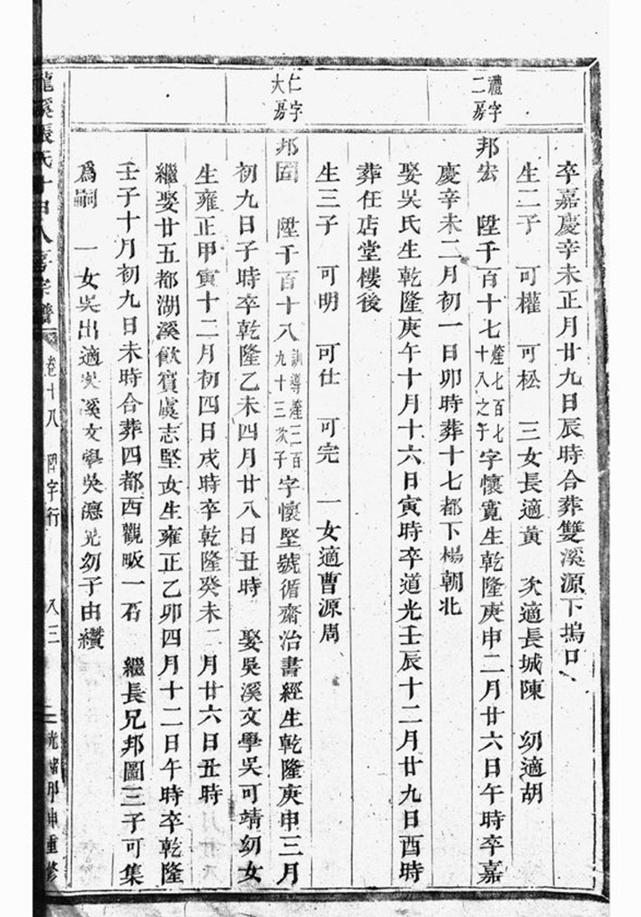 卒嘉慶辛未正月廿九日辰時合葬雙溪源下塢口
生二子 可權 可松 三女長適黃 次適長城陳 幼適胡
禮字二房
邦宏 陞千百十七燧七百七十八之子字懷寬生乾隆庚申二月廿六日午時卒嘉
慶辛未二月初一日卯時葬十七都下楊朝北
娶吳氏生乾隆庚午十月十六日寅時卒道光壬辰十二月廿九日酉時
葬任店堂樓後
生三子 可明 可仕 可完 一女適曹源周
仁字大房
邦固 陞千百十八訓導燧三百九十三次子字懷堅號循齋治書經生乾隆庚申三月
初九日子時卒乾隆乙未四月廿八日丑時 娶吳溪文學吳可靖幼女
生雍正甲寅十二月初四日戌時卒乾隆癸未二月廿六日丑時
繼娶廿五都湖溪飲賓虞志堅女生雍正乙卯四月十二日午時卒乾隆
壬子十月初九日未時合葬四都西觀畈一石 繼長兄邦圖三子可集
為嗣 一女吳出適吳溪文學吳德光幼子由纘
龍溪張氏 宗譜 卷十八 固字行 八三 光緒丙申重修